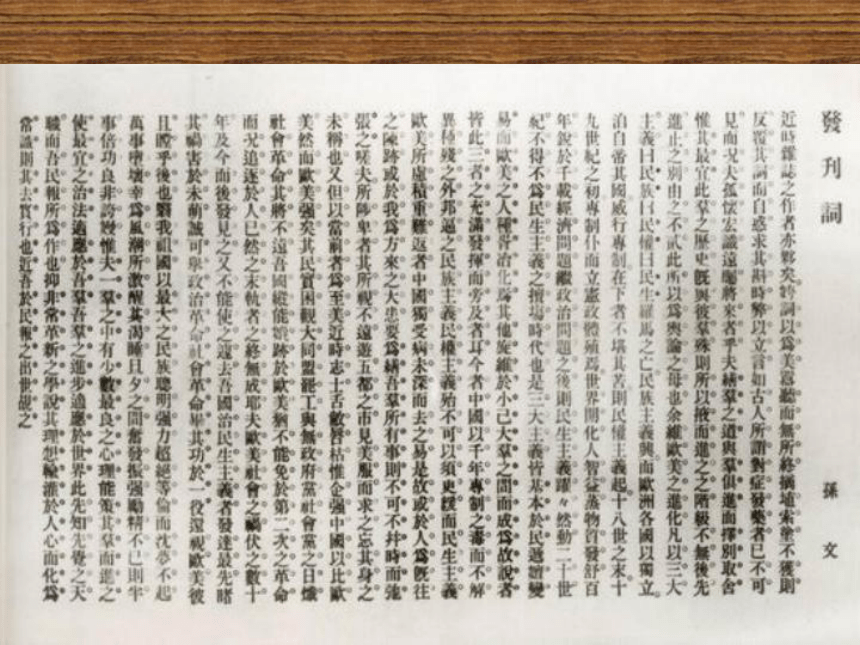 發刊詞
孫文
近時雜誌之作者亦夥矣姱詞以爲美囂聽而無所終摘埴索塗不獲則
反覆其詞而自惑求其斟時弊以立言如古人所謂對症發藥者已不可
見而況夫孤懷宏識遠矚將來者乎夫繕羣之道與羣俱進而擇別取舍
惟其最宜此羣之歷史既與彼羣殊則所以掖而進之之階級不無後先
進止之別由之不貳此所以爲輿論之母也余維歐美之進化凡以三大
主義曰民族曰民權曰民生羅馬之亡民族主義興而歐洲各國以獨立
洎自帝其國威行專制在下者不堪其苦則民權主義起十八世之末十
九世紀之初專制仆而立憲政體殖焉世界開化人智益蒸物質發舒百
年銳於千載經濟問題繼政治問題之後則民生主義躍々然動二十世
紀不得不爲民生主義之擅塲時代也是三大主義皆基本於民遞嬗變
易而歐美之人種胥冶化焉其他旋維於小己大羣之間而成爲故說者
皆此三者之充滿發揮而旁及者耳今者中國以千年專制之毒而不解
異種殘之外邦逼之民族主義民權主義殆不可以須臾緩而民生主義
歐美所慮積重難返者中國獨受病未深而去之易是故或於人爲既往
之陳跡或於我爲方來之大患要爲繕吾羣所有事則不可不幷時而弛
張之嗟夫所陟卑者其所視不遠遊五都之市見美服而求之忘其身之
未稱也又但以當前者爲至美近時志士舌敝唇枯惟企强中國以比歐
美然而歐美强矣其民實困觀大同盟罷工與無政府黨社會黨之日熾
社會革命其將不遠吾國縱能媲跡於歐美猶不能免於第二次之革命
而況追逐於人已然之末軌者之終無成耶夫歐美社會之禍伏之數十
年及今而後發見之又不能使之遽去吾國治民生主義者發達最先睹
其禍害於未萌誠可舉政治革命社會革命畢其功於一役還視歐美彼
且瞠乎後也翳我祖國以最大之民族聰明强力超絕等倫而沈夢不起
萬事墮壞幸爲風潮所激醒其渴睡旦夕之間奮發振强勵精不已則半
事倍功良非誇嫚惟夫一羣之中有少數最良之心理能策其羣而進之
使最宜之治法適應於吾羣吾羣之進步適應於世界此先知先覺之天
職而吾民報所爲作也抑非常革新之學說其理想輸灌於人心而化爲
常識則其去實行也近吾於民報之出世覘之